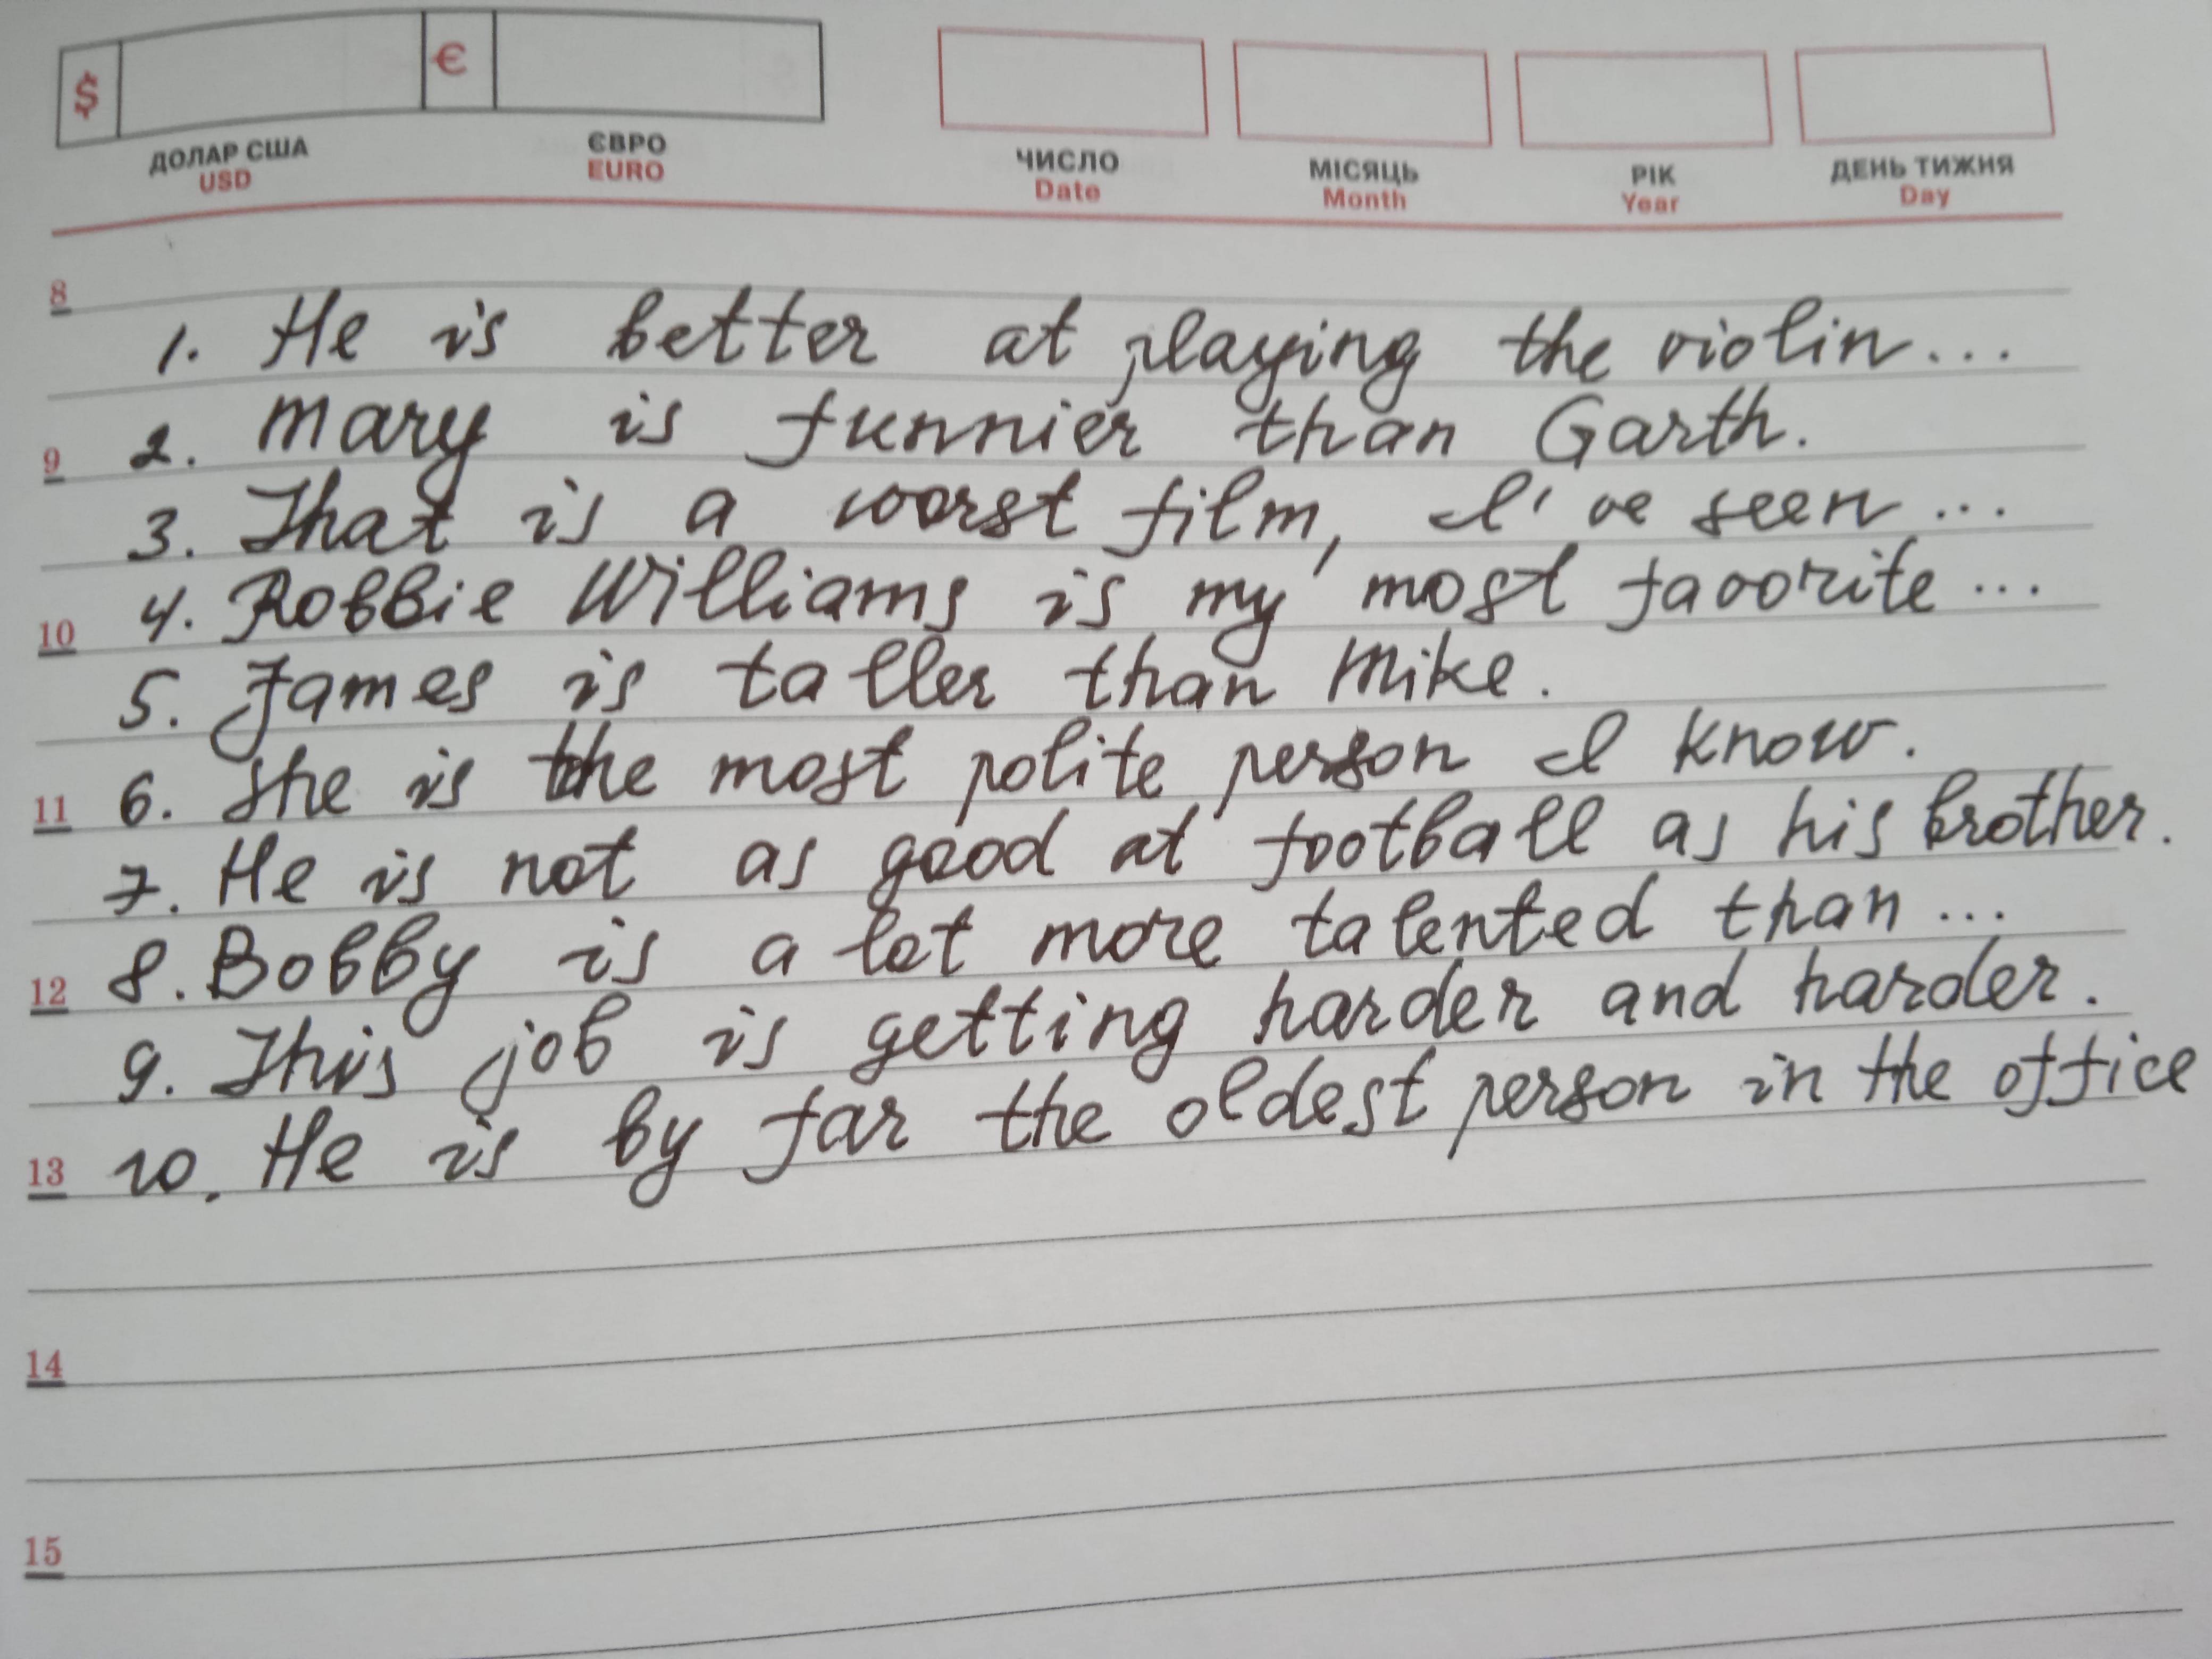 $ €
ДОЛАР США ЄВРО ЧИСЛО МІСЯЦЬ РІК ДЕНЬ ТИЖНЯ
USD EURO Date Month Year Day
8
1. He is better at playing the violin...
9 2. Mary is funnier than Garth.
3. That is a worst film, I've seen...
10 4. Robbie Williams is my most favorite...
5. James is taller than Mike.
11 6. She is the most polite person I know.
7. He is not as good at football as his brother.
12 8. Bobby is a lot more talented than...
9. This job is getting harder and harder.
13 10. He is by far the oldest person in the office
14
15